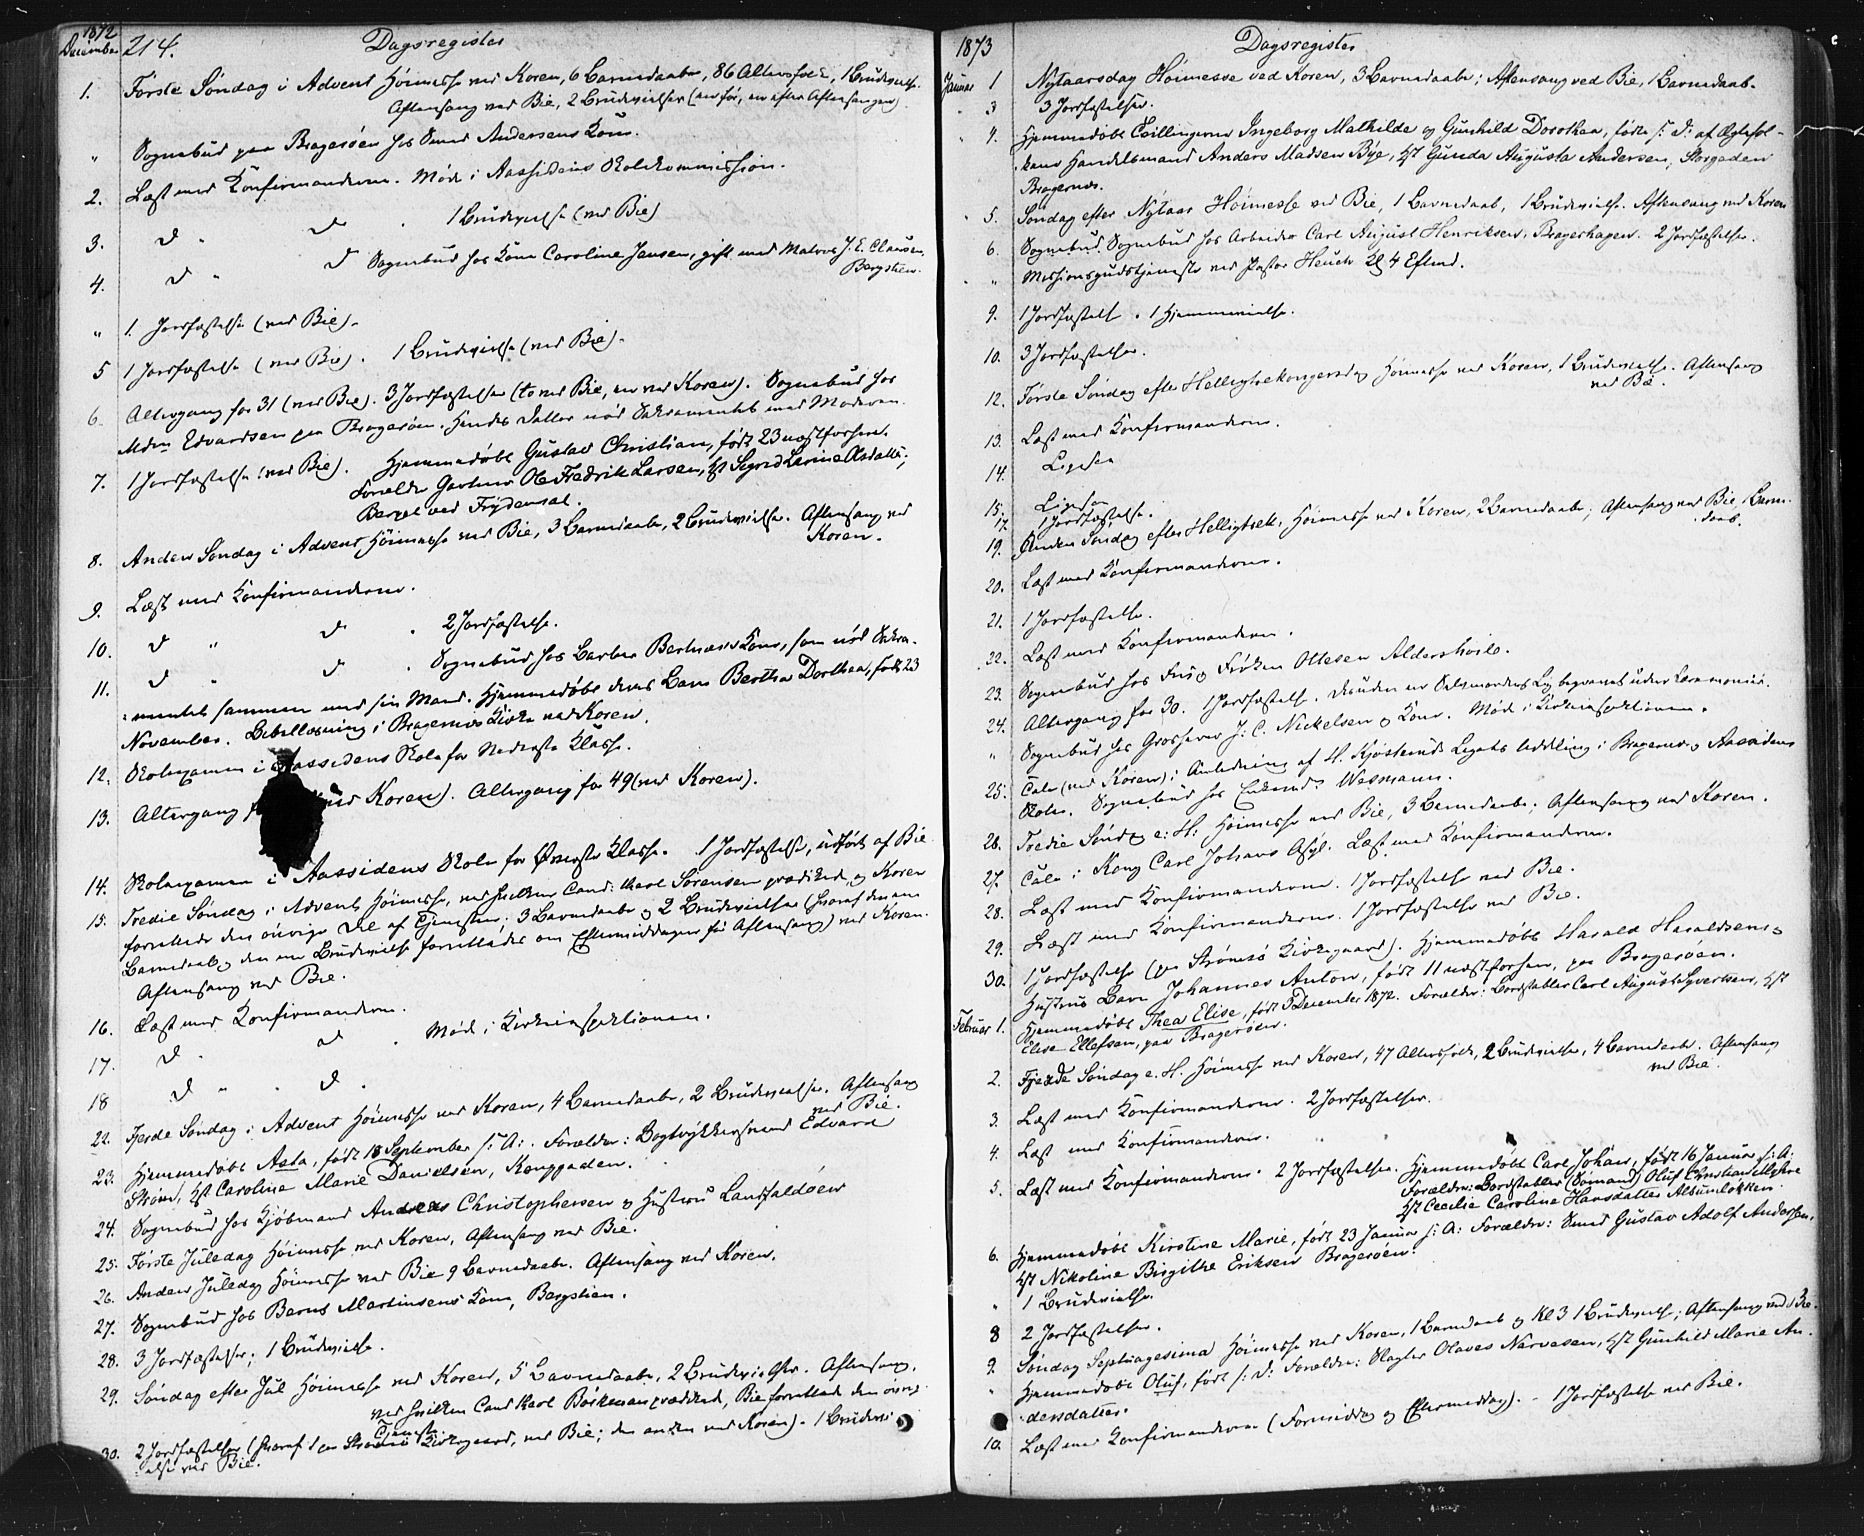 1872
December 214. Dagsregister
1. Første Søndag i Advent Høimesse ved Koren, 6 Barnedaabe, 86 Altersfolk, 1 Brudevielse.
Aftensang ved Bie, 2 Brudevielser (en før, en efter Aftensangen)
" Sognebud paa Bragerøen hos Smed Andersens Kone.
2. Læst med Konfirmanderne. Møde i Aassidens Skolekommission.
3. D " D . 1 Brudevielse (ved Bie)
4. D " D Sognebud hos Kone Caroline Jensen, gift med Matros J. E. Clausen,
Bergstien.
" 1 Jordfæstelse (ved Bie).
5 1 Jordfæstelse (ved Bie). 1 Brudevielse (ved Bie).
6. Altergang for 31 (ved Bie). 3 Jordfæstelser (to ved Bie, en ved Koren). Sognebud hos
Mdm Edvardsen paa Bragerøen. Hendes Datter nød Sakramentet med Moderen.
7. 1 Jordfæstelse (ved Bie). Hjemmedøbt Gustav Christian, født 23 næstforhen.
Forældre Gartner Ole Fredrik Larsen, Hst Sigrid Larine Olsdatter,
Berget ved Frydendal.
8. Anden Søndag i Advent Høimesse ved Bie, 3 Barnedaabe, 2 Brudevielser. Aftensang ved
Koren.
9. Læst med Konfirmanderne.
10. D " D . 2 Jordfæstelse.
11. D " D . Sognebud hos Barber Kone, som nød Sakra-
mentet sammen med sin Mand. Hjemmedøbt deres Barn Bertha Dorthea, født 23
November. Bibellæsning i Bragernes Kirke ved Koren.
12. Skoleexamen i Aassidens Skole for Nederste Klasse.
13. Altergang ved Koren). Altergang for 49 (ved Koren).
14. Skoleexamen i Aassidens Skole for Øverste Klasse. 1 Jordfæstelse, udført af Bie
15. Tredie Søndag i Advent Høimesse, ved hvilken Cand: Karl Sørensen prædikede, og Koren
forrettede den øvrige Del af Tjenesten; 3 Barnedaabe og 2 Brudevielser (hvoraf den ene
Barnedaab og den ene Brudevielse forrettedes om Eftermiddagen før Aftensang) ved Koren.
Aftensang ved Bie.
16. Læst med Konfirmanderne.
17. D . D . Møde i Kirkeinspektionen.
18 D " . D .
22. Fjerde Søndag i Advent Høimesse ved Koren, 4 Barnedaabe, 2 Brudevielser. Aftensang
ved Bie.
23. Hjemmedøbt Asta, født 18 September s: A:. Forældre: Bogtrykkersvend Edvard
Strøm, Hst Caroline Marie Danielsen, Konggaden.
24. Sognebud hos Kjøbmand Andreas Christophersen og Hustru Landfaldøen
25. Første Juledag Høimesse ved Koren, Aftensang ved Bie.
26. Anden Juledag Høimesse ved Bie 9 Barnedaabe. Aftensang ved Koren.
27. Sognebud hos Bernt Martinsens Kone, Bergstien.
28. 3 Jordfæstelser; 1 Brudevielse.
29. Søndag efter Jul Høimesse ved Koren, 5 Barnedaabe, 2 Brudevielser. Aftensang,
ved hvilken Cand Karl Börkman prædikede, Bie forrettede den øvrige
Tjeneste.
30. 2 Jordfæstelser (hvoraf 1 paa Strømsø Kirkegaard, ved Bie; den anden ved Koren). 1 Brudevi-
else ved Bie.
1873 Dagsregister
Januar 1 Nytaarsdag Høimesse ved Koren, 3 Barnedaabe; Aftensang ved Bie, 1 Barnedaab.
" 3 3 Jordfæstelser.
" 4. Hjemmedøbt Tvillingerne Ingeborg Mathilde og Gunhild Dorothea, fødte s: D: af Ægtefol-
kene Handelsmand Anders Madsen Bye, Hst Gunda Augusta Andersen, Storgaden
Bragernes.
" 5. Søndag efter Nytaar Høimesse ved Bie, 1 Barnedaab, 1 Brudevielse. Aftensang ved Koren
6. Sognebud. Sognebud hos Arbeider Carl August Henriksen, Bragerhagen. 2 Jordfæstelse.
" Missionsgudstjeneste ved Pastor Heuch Kl 4 Eftmd.
9. 1 Jordfæstelse . 1 Hjemmevielse.
10. 3 Jordfæstelser.
12. Første Søndag efter Helligtrekongersdag Høimesse ved Koren, 1 Brudevielse. Aftensang
ved Bie.
13. Læst med Konfirmanderne.
14. Ligesaa
15. Ligesaa
17. 1 Jordfæstelse.
19. Anden Søndag efter Helligtrek. Høimesse ved Koren, 2 Barnedaabe; Aftensang ved Bie 1 Barne-
daab.
20. Læst med Konfirmanderne.
21. 1 Jordfæstelse.
22. Læst med Konfirmanderne.
23. Sognebud hos Frøken Ottesen Aldershvile.
24. Altergang for 30. 1 Jordfæstelse. Desuden en Lig begravet uden Ceremonier.
" Sognebud hos Grosserer J. C. Nickelsen og Kone. Møde i Kirkeinspektionen.
25. Tale (ved Koren) i Anledning af H. Kjøsteruds Legats Uddeling i Bragernes og Aassidens
Skoler. Sognebud hos Wessmann.
26. Tredie Søndag e: H: Høimesse ved Bie, 3 Barnedaabe; Aftensang ved Koren.
27. Tale i Kong Carl Johans Asyl. Læst med Konfirmanderne.
28. Læst med Konfirmanderne. 1 Jordfæstelse ved Bie.
29. Læst med Konfirmanderne. 1 Jordfæstelse ved Bie.
30. 1 Jordfæstelse (paa Strømsø Kirkegaard). Hjemmedøbt Harald Haraldsens og
Hustrus Barn Johannes Anton, født 11 næstforhen, paa Bragerøen.
Februar 1. Hjemmedøbt Thea Elise, født December 1872. Forældre: Bordstabler Carl August Syvertsen, Hst
Elise Ellefsen, paa Bragerøen.
2. Fjerde Søndag e. H. Høimesse ved Koren, 47 Altersfolk, 2 Brudevielser, 4 Barnedaabe. Aftensang
ved Bie.
3. Læst med Konfirmanderne. 2 Jordfæstelser.
4. Læst med Konfirmanderne.
5. Læst med Konfirmanderne. 2 Jordfæstelser. Hjemmedøbt Carl Johan, født 16 Januar s: A:
Forældre: Bordstabler (Sømand) Oluf Christian Myhre
Hst Cecilie Caroline Hansdatter Albumløkken.
6. Hjemmedøbt Kirstine Marie, født 23 Januar s: A: Forældre: Smed Gustav Adolf Andersen,
Hst Nikoline Birgithe Eriksen Bragerøen.
" 1 Brudevielse.
8 2 Jordfæstelser.
9. Søndag Septuagesima Høimesse ved Koren, 1 Barnedaab og Kl 3 1 Brudevielse; Aftensang ved Bie.
" Hjemmedøbt Oluf, født s: D: Forældre: Slagter Olaves Narvesen, Hst Gunhild Marie An-
dersdatter.
10. Læst med Konfirmanderne (Formiddag og Eftermiddag). - 1 Jordfæstelse ved Bie.